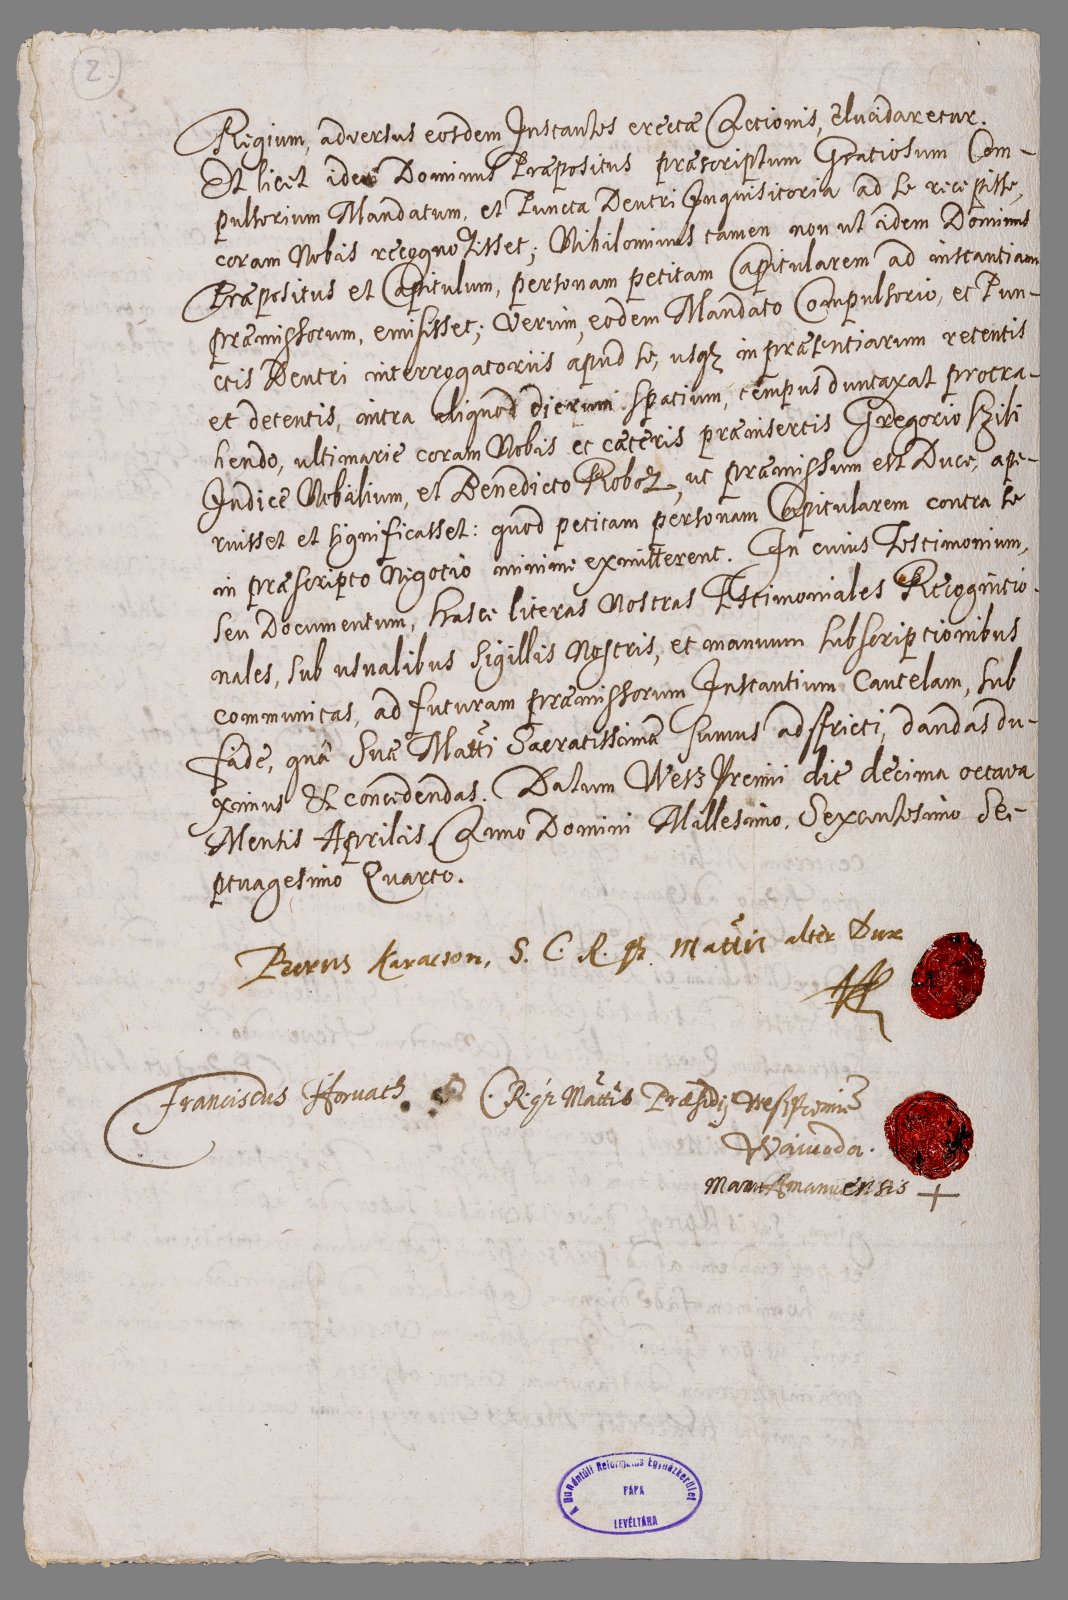 2
Regium, adversus eosdem Instantes erectæ Actionis, elucidaretur.
Et licet idem Dominus Præpositus præscriptum Gratiosum Com-
pulsorium Mandatum, et Puncta Deutri Inquisitoria ad se recepisse,
coram Nobis recognovisset; Nihilominus tamen non ut idem Dominus
Præpositus et Capitulum, personam petitam Capitularem ad instantiam
præmissorum, emisisset; Verum, eodem Mandato Compulsorio, et Pun-
ctis Deutri interrogatoriis apud se, usq3 in præsentiarum retentis
et detentis, intra aliquod dierum spatium, tempus duntaxat protra-
hendo, ultimarie coram Nobis et cæteris præinsertis Gregorio Szili
Judice Nobilium, et Benedicto Roboz, ut præmissum est Duce, ape-
ruisset et significasset: quod petitam personam Capitularem contra se
in præscripto Negotio minime exmitterent. In cuius Testimonium,
seu Documentum, hasce literas Nostras Testimoniales Recognitio-
nales, sub usualibus Sigillis Nostris, et manuum subscriptionibus
communitas, ad futuram præmissorum Instantium Cautelam, sub
fide, quâ Suæ Matti Sacratissimæ sumus adstricti, dandas du-
ximus & concedendas. Datum Weszpremii die decima octava
Mensis Aprilis. Anno Domini Millesimo, Sexcentesimo Se-
ptuagesimo Quarto.
Petrus Karacson, S. C. R. q3 Mattis alter Dux
Franciscus Horvath C. Rq3 Mattis Præsidij Weszpremie
Waiuoda.
Manu Amanuensis +
A Dunántúli Református Egyházkerület
PÁPA
LEVÉLTÁRA